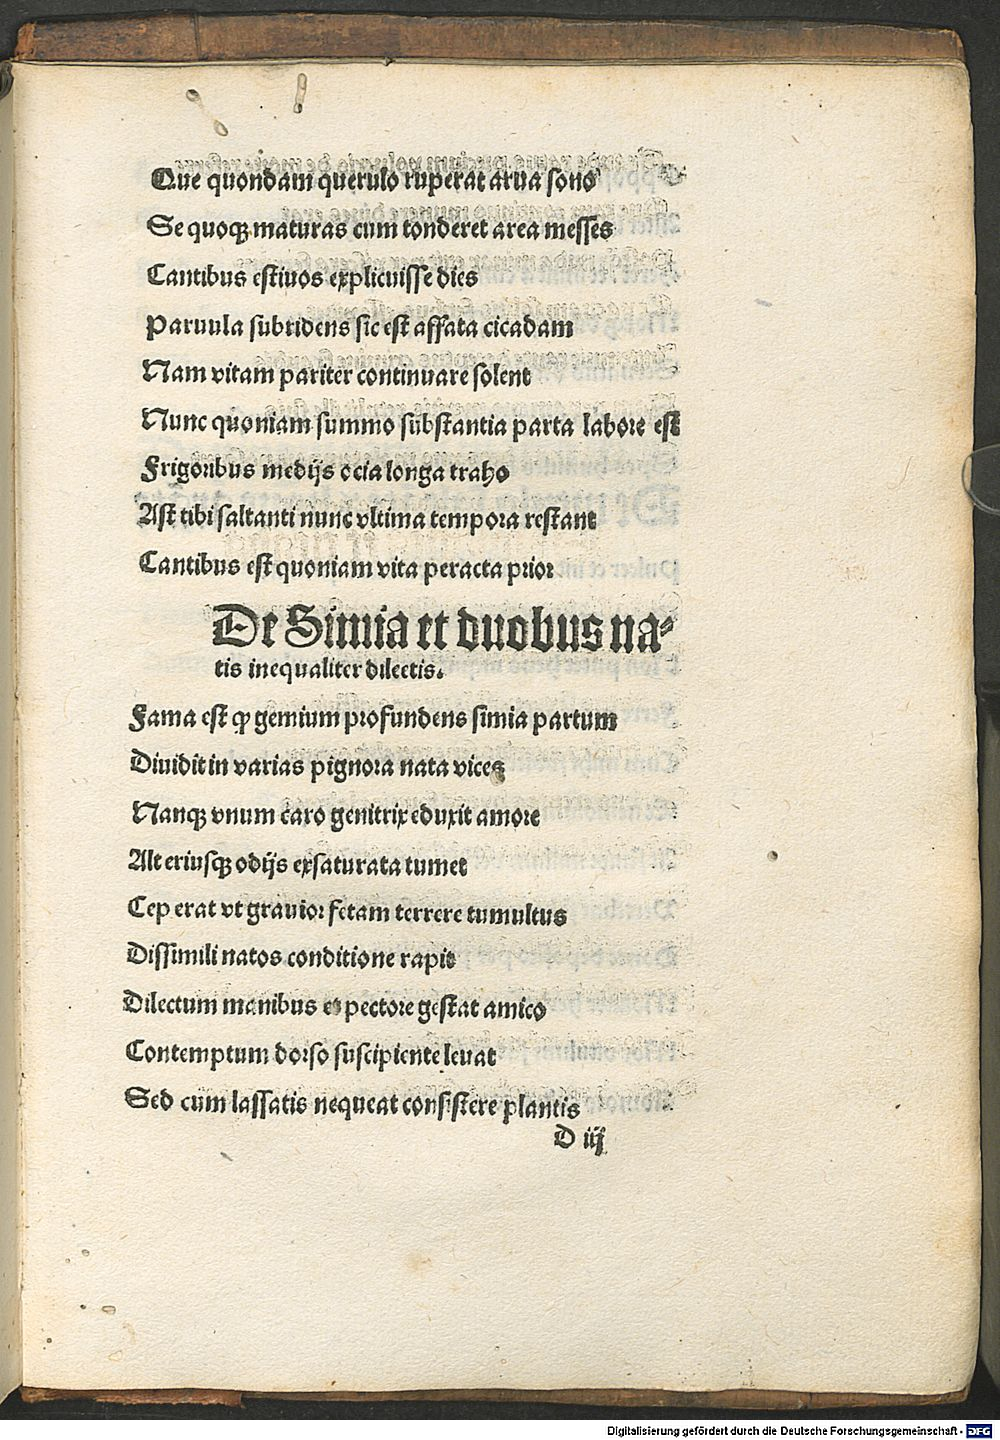 Que quondam querulo ruperat arua sono
Se quoqꝫ maturas cum tonderet area messes
Cantibus estiuos explicuisse dies
Paruula subridens sic est affata cicadam
Nam vitam pariter continuare solent
Nunc quoniam summo substantia parta labore est
Frigoribus medijs ocia longa traho
Ast tibi saltanti nunc vltima tempora restant
Cantibus est quoniam vita peracta prior
De Simia et duobus na⸗
tis inequaliter dilectis.
Fama est ꝙ gemium profundens simia partum
Diuidit in varias pignora nata vices
Nanqꝫ vnum caro genitrix eduxit amore
Alt eriusqꝫ odijs exsaturata tumet
Cep erat vt grauior fetam terrere tumultus
Dissimili natos conditione rapit
Dilectum manibus et pectore gestat amico
Contemptum dorso suscipiente leuat
Sed cum lassatis nequeat consistere plantis
D iij
Digitalisierung gefördert durch die Deutsche Forschungsgemeinschaft - DFG